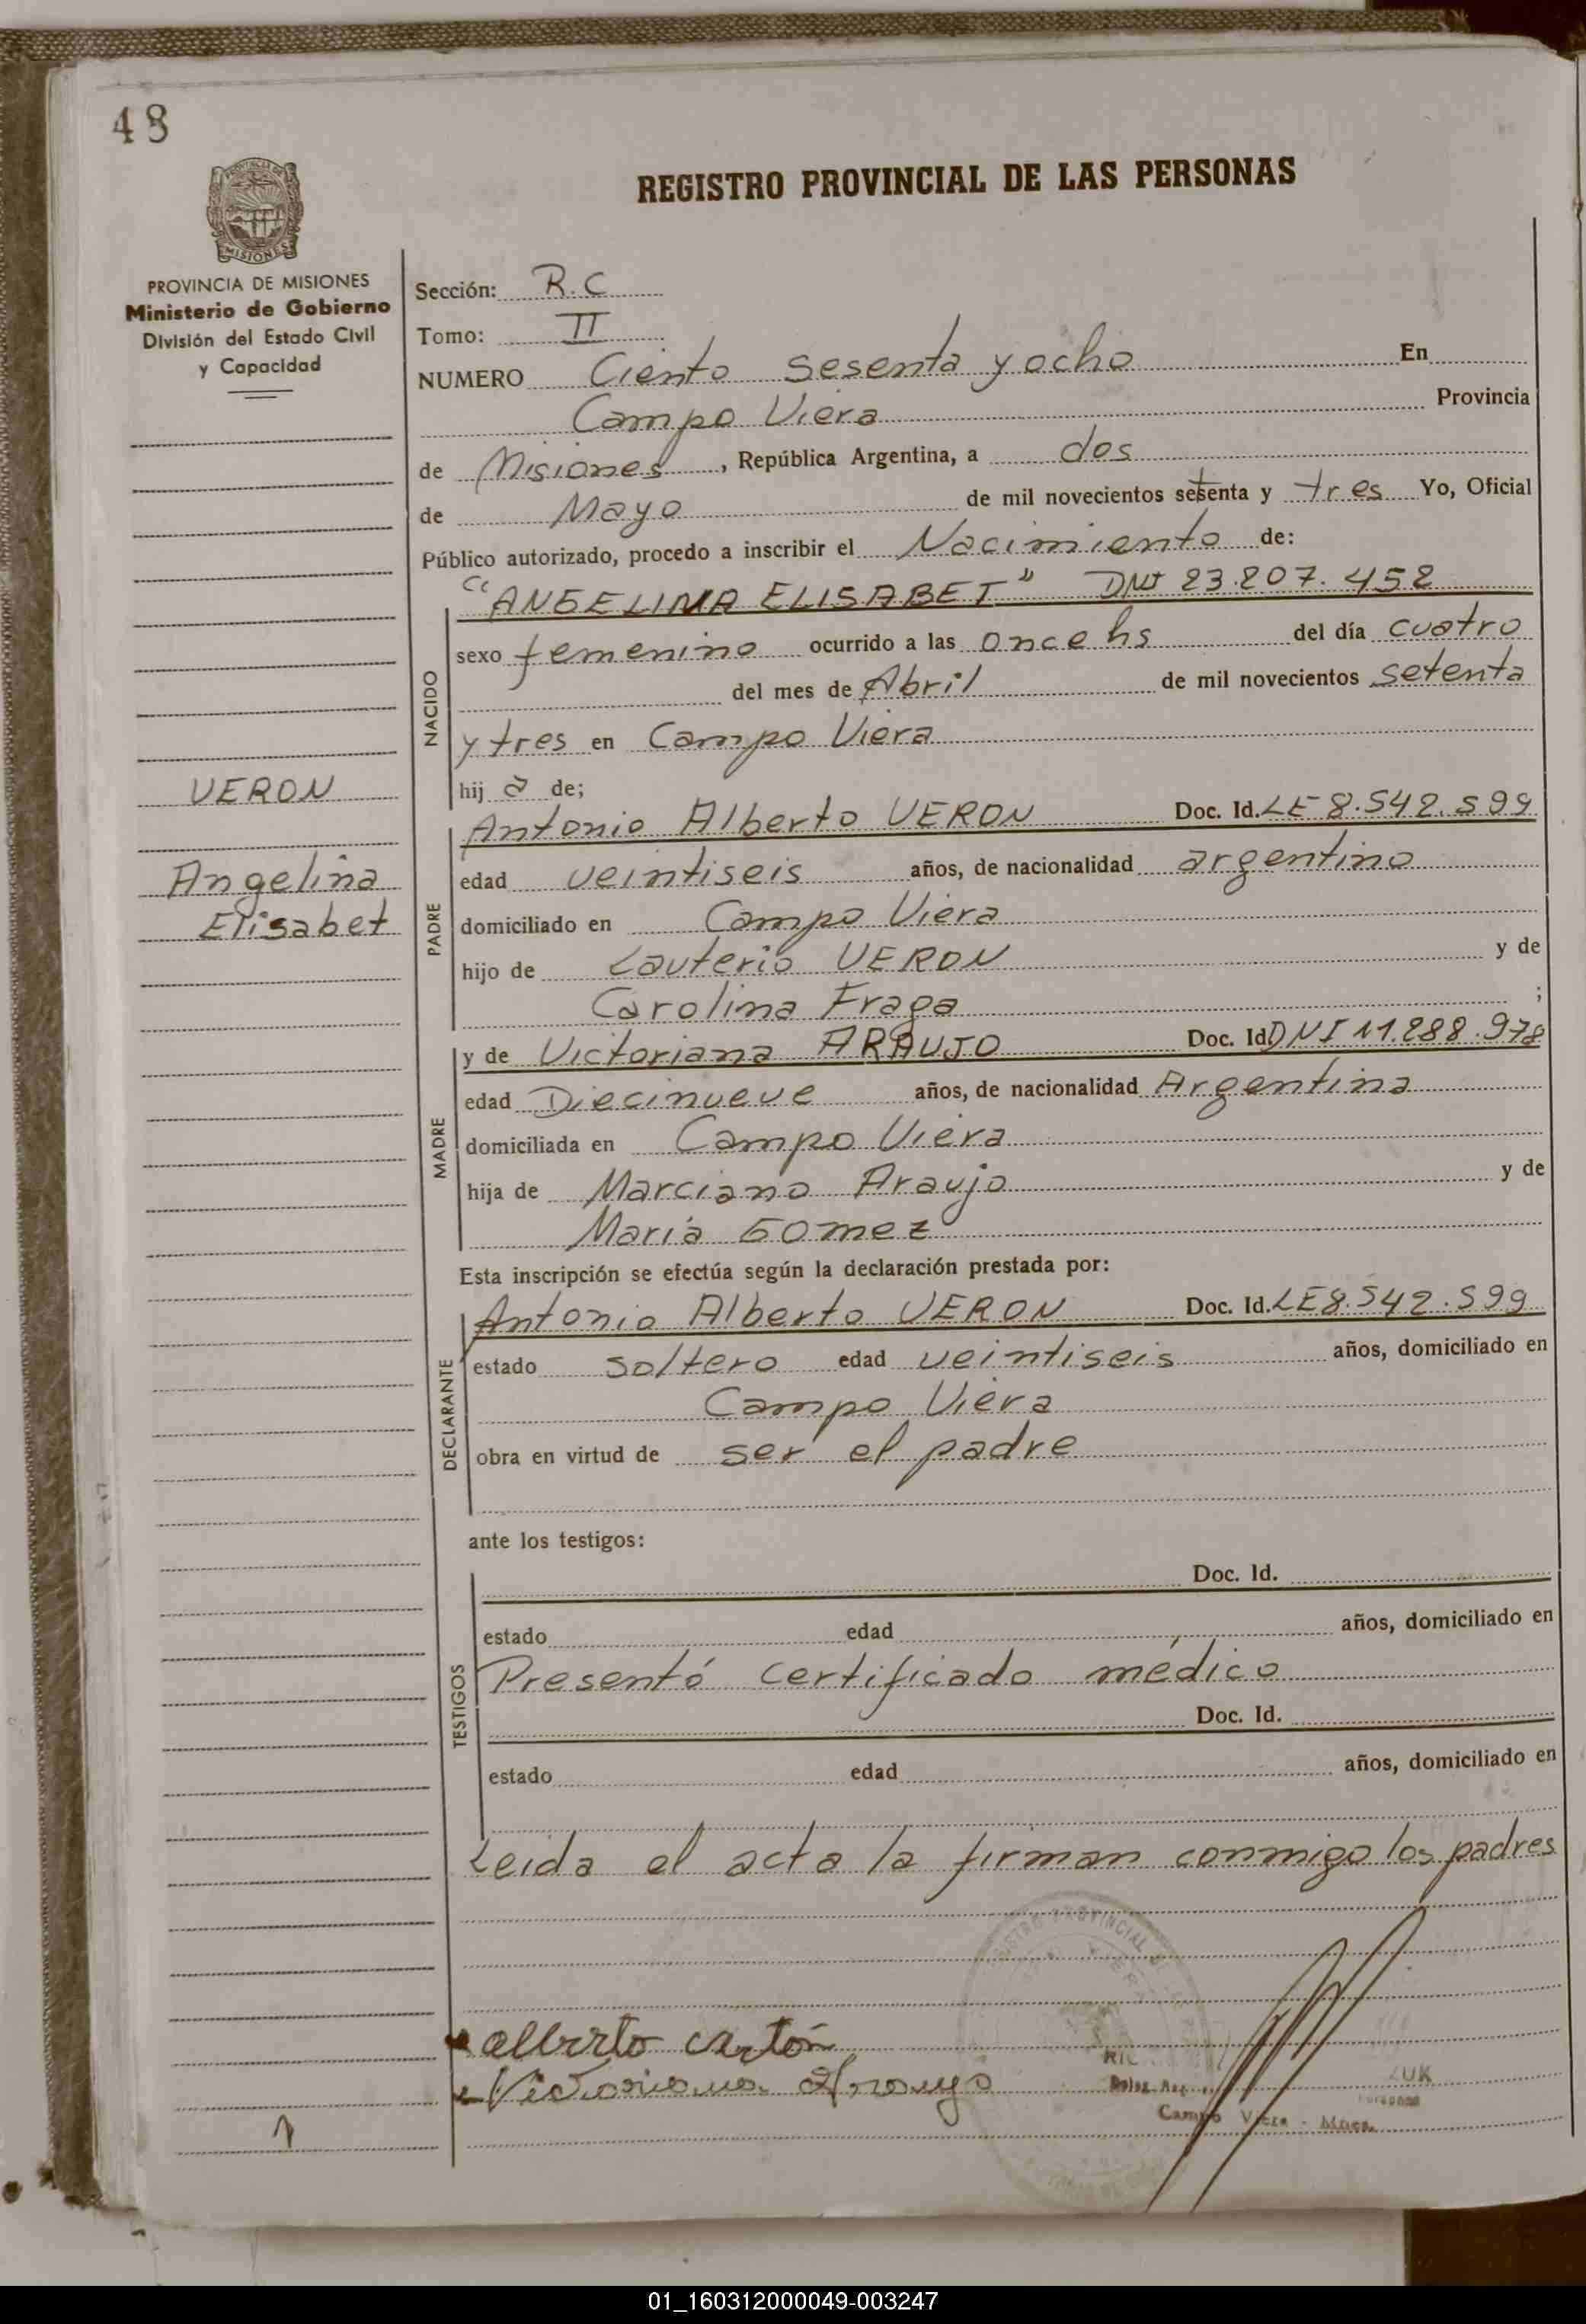 48
REGISTRO PROVINCIAL DE LAS PERSONAS
PROVINCIA DE MISIONES
Ministerio de Gobierno
División del Estado Civil
y Capacidad
VERON
Angelina
Elisabet
Sección: R.C
Tomo: II
NUMERO Ciento sesenta y ocho En
Campo Viera Provincia
de Misiones, República Argentina, a dos
de Mayo de mil novecientos setenta y tres Yo, Oficial
Público autorizado, procedo a inscribir el Nacimiento de:
"ANGELINA ELISABET" DNI 23.207.452
NACIDO
sexo femenino ocurrido a las once hs del día cuatro
del mes de Abril de mil novecientos setenta
y tres en Campo Viera
hij a de;
PADRE
Antonio Alberto VERON Doc. Id. LE 8.542.599
edad veintiseis años, de nacionalidad argentino
domiciliado en Campo Viera
hijo de Lauterio VERON y de
Carolina Fraga ;
MADRE
y de Victoriana ARAUJO Doc. Id DNI 11.288.978
edad Diecinueve años, de nacionalidad Argentina
domiciliada en Campo Viera
hija de Marciano Araujo y de
Maria Gomez
Esta inscripción se efectúa según la declaración prestada por:
DECLARANTE
Antonio Alberto VERON Doc. Id. LE 8.542.599
estado soltero edad veintiseis años, domiciliado en
Campo Viera
obra en virtud de ser el padre
ante los testigos:
TESTIGOS
Doc. Id.
estado edad años, domiciliado en
Presentó certificado médico
Doc. Id.
estado edad años, domiciliado en
Leida el acta la firman conmigo los padres
alberto
Victoriana Araujo
Campo Viera - Mnes.
01_160312000049-003247